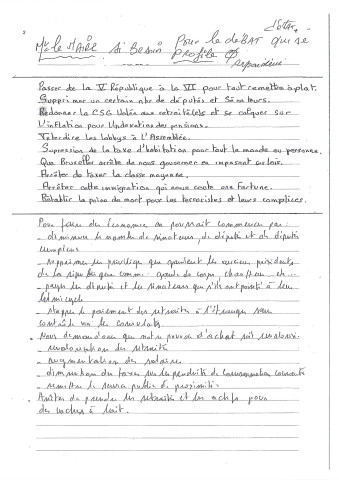 d'état
Mr le MAIRE si Besoin Pour le déBAT qui se
profile
Passer de la V République à la VI pour tout remettre à plat.
Supprimer un certain nbr de députés et Sénateurs.
Redonner la CSG Volée aux retraité(e)s et se calquer sur
l'inflation pour l'indexation des pensions.
Interdire les lobbys à l'Assemblée.
Supression de la taxe d'habitation pour tout le monde ou personne.
Que Bruxelles arrête de nous gouverner en imposant ses lois.
Arrêter de taxer la classe moyenne.
Arrêter cette immigration qui nous coute une fortune.
Rétablir la peine de mort pour les terroristes et leurs complices.
Pour faire des économies on pourrait commencer par :
- diminuer le nombre de sénateurs, de députés et de députés
européens
- supprimer les privilèges que gardent les anciens présidents
de la république comme : garde du corps, chauffeur, etc...
- payer les députés et les sénateurs que s'ils ont pointé à leur
hémicycle
- stopper le paiement des retraites à l'étranger sans
contrôle via les consulats
Nous demandons que notre pouvoir d'achat soit revalorisé.
- revalorisation des retraites
- augmentation des salaires
- diminution des taxes sur les produits de consommation courante
- remettre le service public de proximité
Arrêter de prendre les retraités et les actifs pour
des vaches à lait.